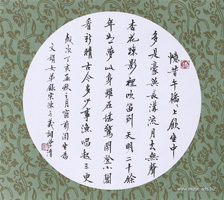 憶昔午橋橋上飲坐中
多是豪英長溝流月去無聲
杏花疏影裏吹笛到天明二十餘
年如一夢此身雖在堪驚閒登小閣
看新晴古今多少事漁唱起三更
歲次丁亥